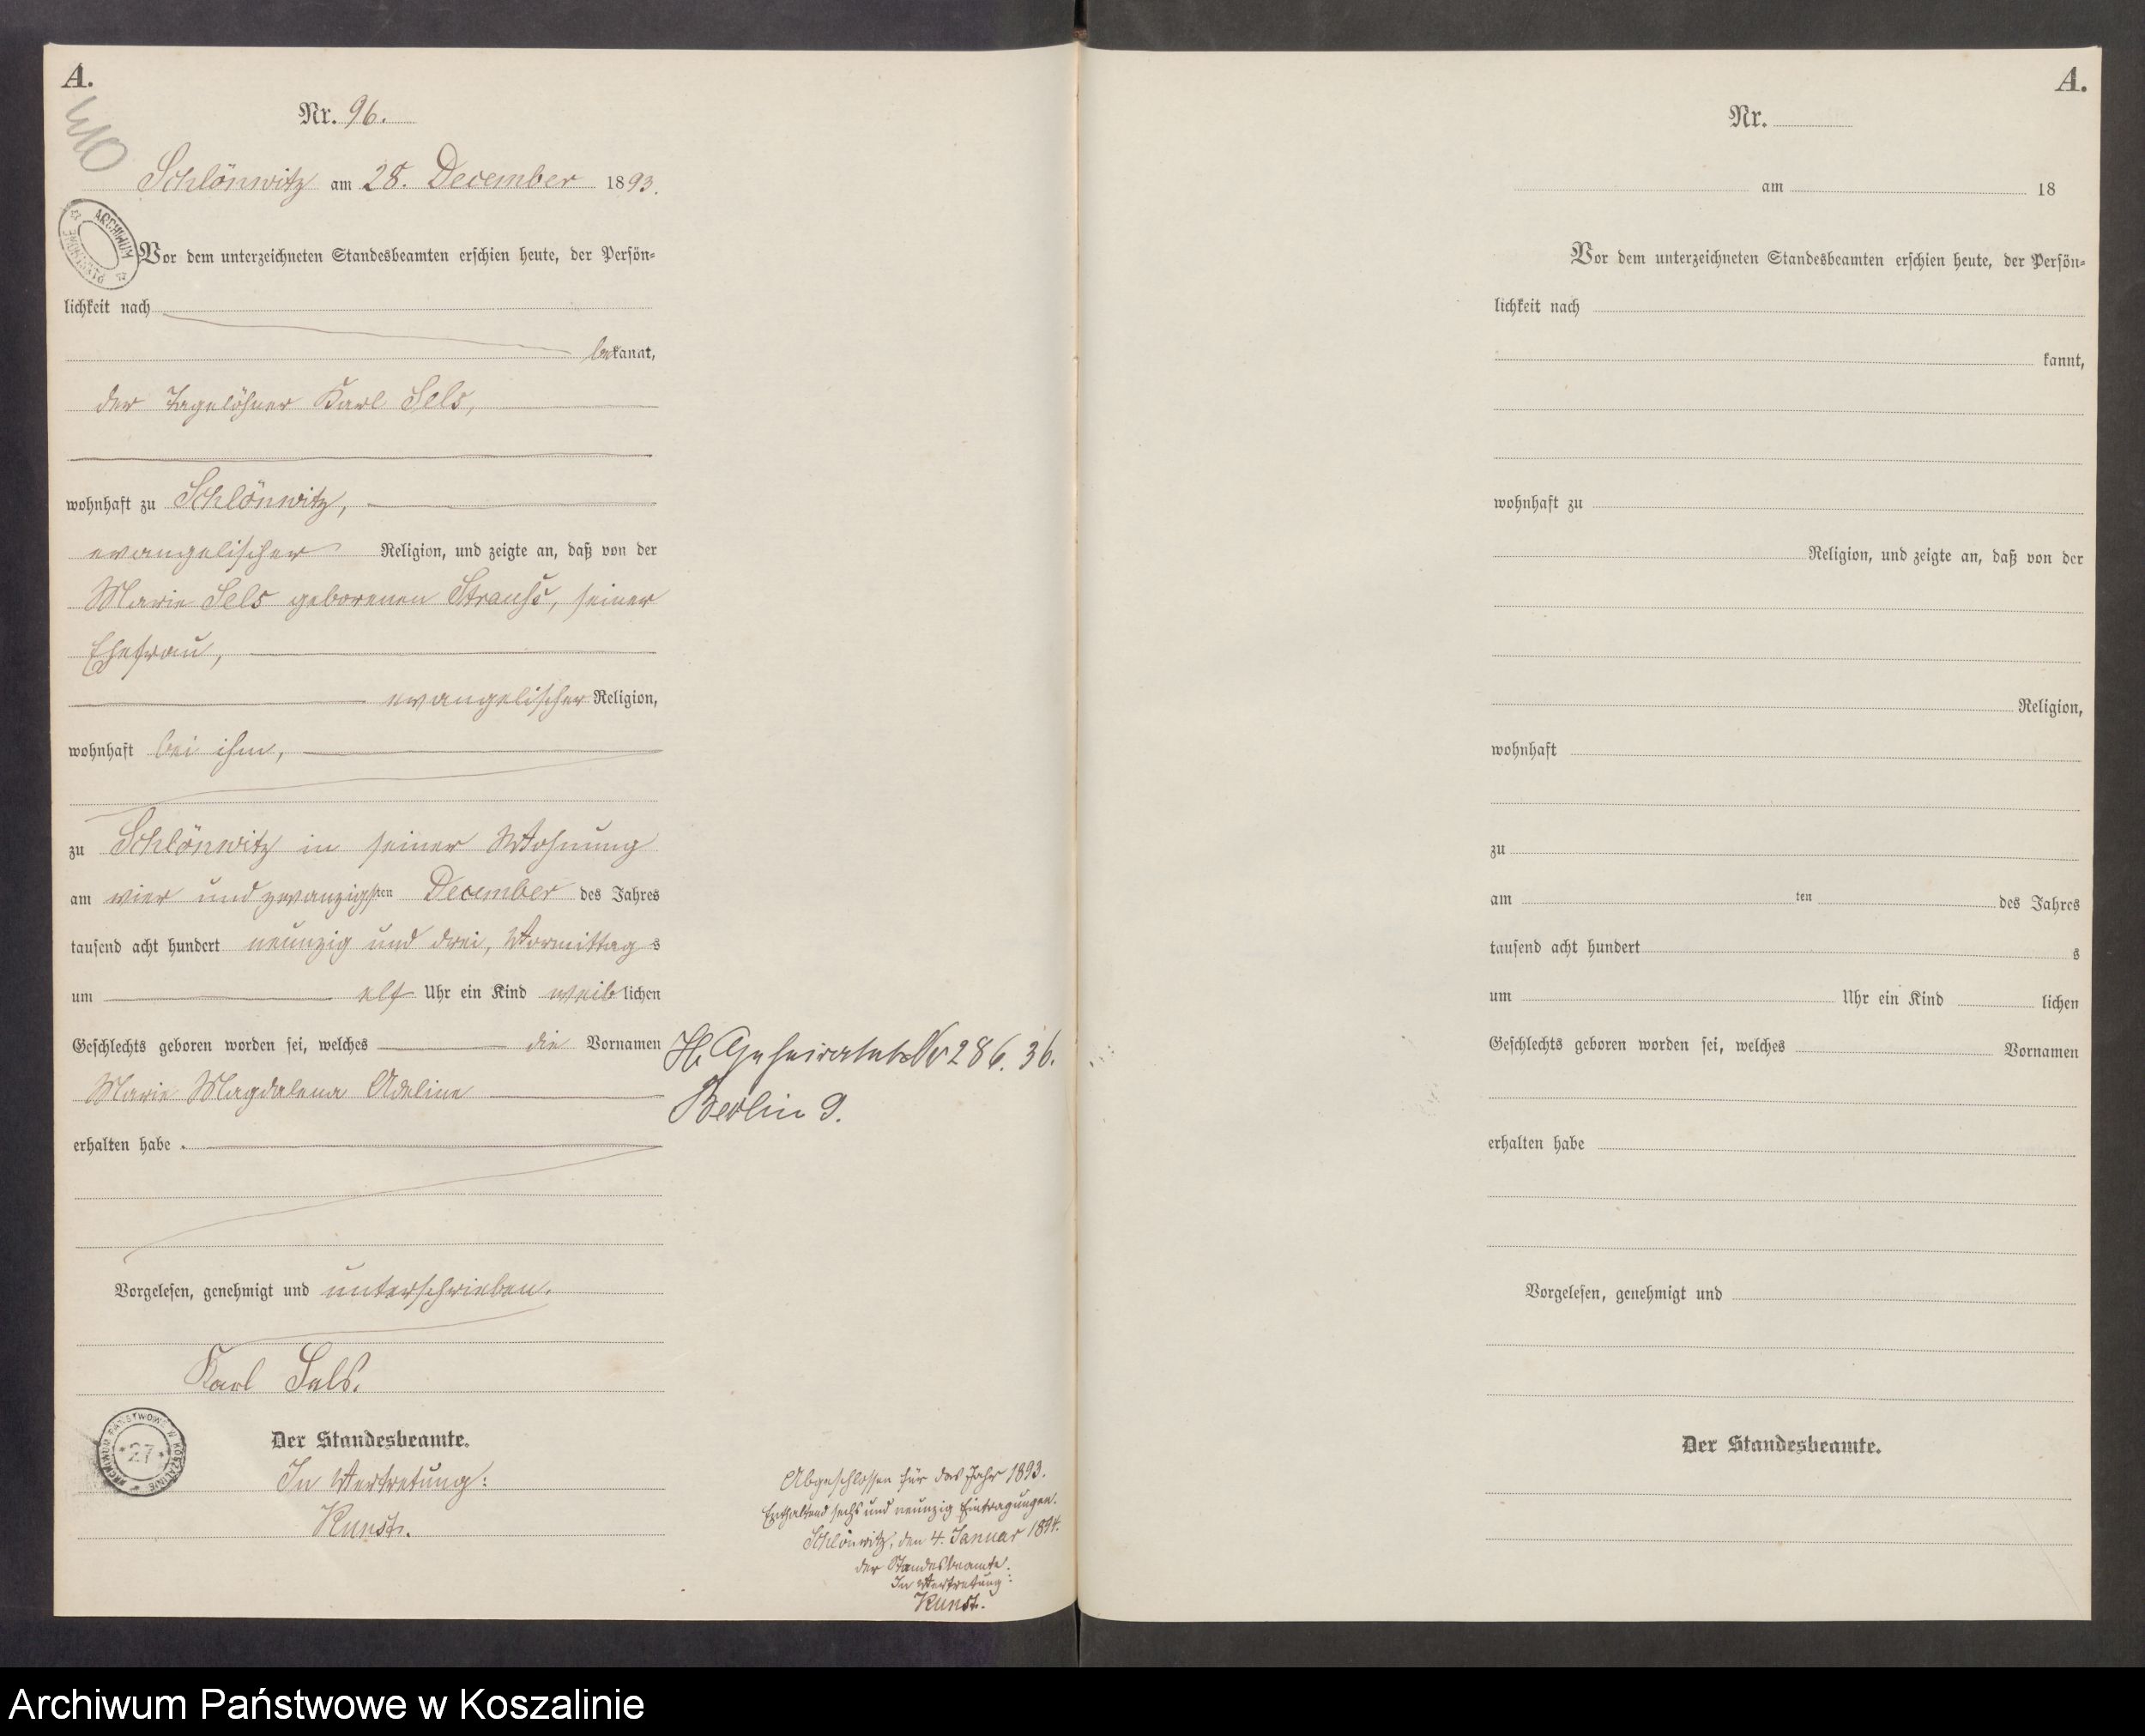 A.
Nr. 96.
Schlönwitz am 28. December 1893.
ARCHIWUM PAŃSTWOWE
Vor dem unterzeichneten Standesbeamten erschien heute, der Persön-
lichkeit nach
bekannt,
der Tagelöhner Karl Sels,
wohnhaft zu Schlönwitz,
evangelischer Religion, und zeigte an, daß von der
Marie Sels geborenen Strauß, seiner
Ehefrau,
evangelischer Religion,
wohnhaft bei ihm,
zu Schlönwitz in seiner Wohnung
am vier und zwanzigsten December des Jahres
tausend acht hundert neunzig und drei, Vormittags
um elf Uhr ein Kind weiblichen
Geschlechts geboren worden sei, welches die Vornamen
Marie Magdalena Adeline
erhalten habe.
Vorgelesen, genehmigt und unterschrieben.
Karl Sels.
Der Standesbeamte.
In Vertretung:
Kunst.
ARCHIWUM PAŃSTWOWE W KOSZALINIE
* 27 *
Nr 286. 36.
Berlin 9.
Abgeschlossen für das Jahr 1893.
Enthaltend sechs und neunzig Eintragungen.
Schlönwitz, den 4. Januar 1894.
der Standesbeamte.
In Vertretung:
Kunst.
A.
Nr.
am 18
Vor dem unterzeichneten Standesbeamten erschien heute, der Persön-
lichkeit nach
kannt,
wohnhaft zu
Religion, und zeigte an, daß von der
Religion,
wohnhaft
zu
am ten des Jahres
tausend acht hundert s
um Uhr ein Kind lichen
Geschlechts geboren worden sei, welches Vornamen
erhalten habe
Vorgelesen, genehmigt und
Der Standesbeamte.
Archiwum Państwowe w Koszalinie